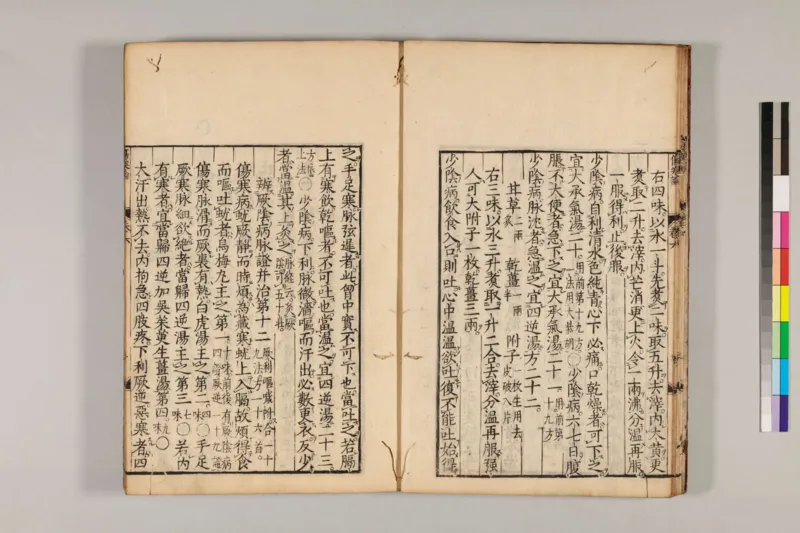 右四味以水一斗先煑二味取五升去滓内大黄更
煑取二升去滓内芒消更上火令一兩沸分温再服
一服得利止後服
少陰病自利清水色純青心下必痛口乾燥者可下之
宜大承氣湯二十用前第十九方一法用大柴胡〇少陰病六七日腹
脹不大便者急下之宜大承氣湯二十一用前第十九方
少陰病脉沈者急温之宜四逆湯方二十二
甘草二兩炙 乾薑一兩半 附子一枚生用去皮破八片
右三味以水三升煑取一升二合去滓分温再服强
人可大附子一枚乾薑三兩
少陰病飲食入口則吐心中温温欲吐復不能吐始得
之手足寒脉弦遲者此胷中實不可下也當吐之若膈
上有寒飲乾嘔者不可吐也當温之宜四逆湯二十三
方依上法〇少陰病下利脉微濇嘔而汗出必數更衣反少
者當温其上灸之脉經云灸厥陰可五十壯
辨厥陰病脉證并治第十二厥利嘔噦附合一十九法方一十六首
傷寒病蚘厥靜而時煩爲藏寒蚘上入膈故煩得食
而嘔吐蚘者烏梅丸主之第一十味前後有厥陰病四證厥逆一十九證
傷寒脉滑而厥裏有熱白虎湯主之第二四味〇手足
厥寒脉細欲絶者當歸四逆湯主之第三七味〇若内
有寒者宜當歸四逆加吳茱萸生薑湯第四九味〇
大汗出熱不去内拘急四肢疼下利厥逆惡寒者四